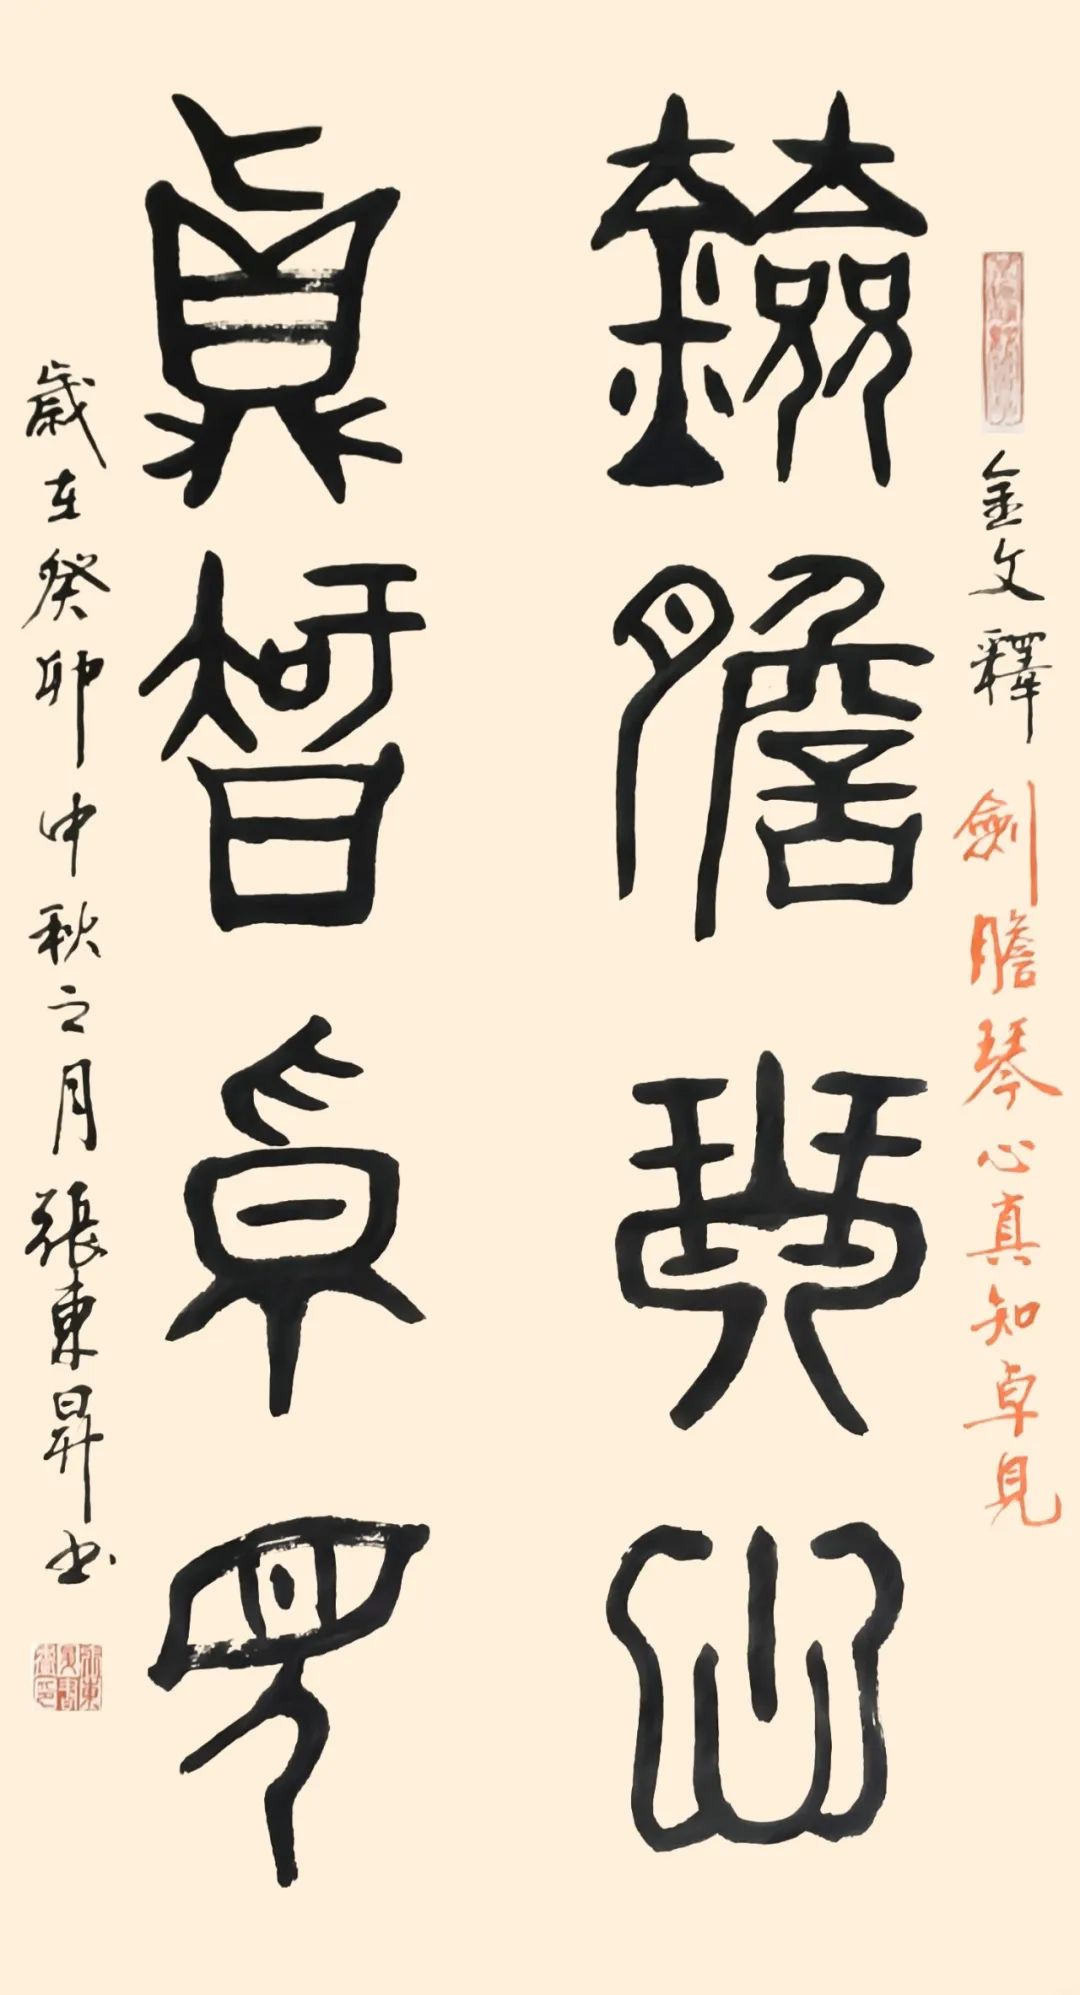 金文釋 劍膽琴心真知卓見
劍膽琴心
真智卓見
歲在癸卯中秋之月張東昇书